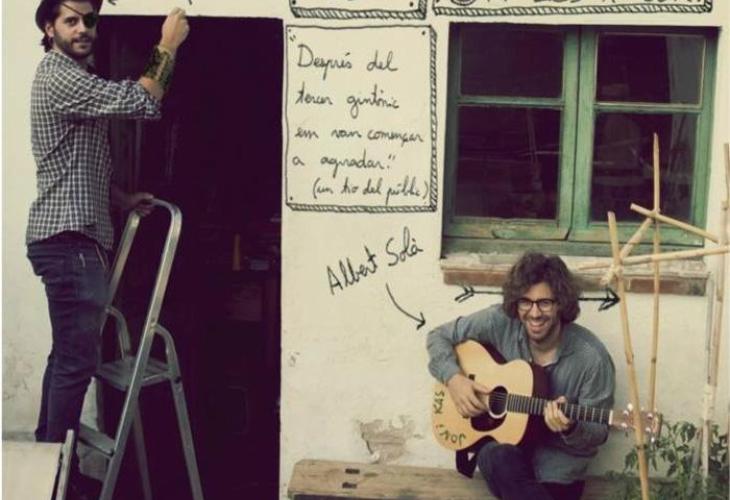 "Després del
tercer gintònic
em van començar
a agradar."
(un tio del públic)
Albert Solà
JON i
KAS